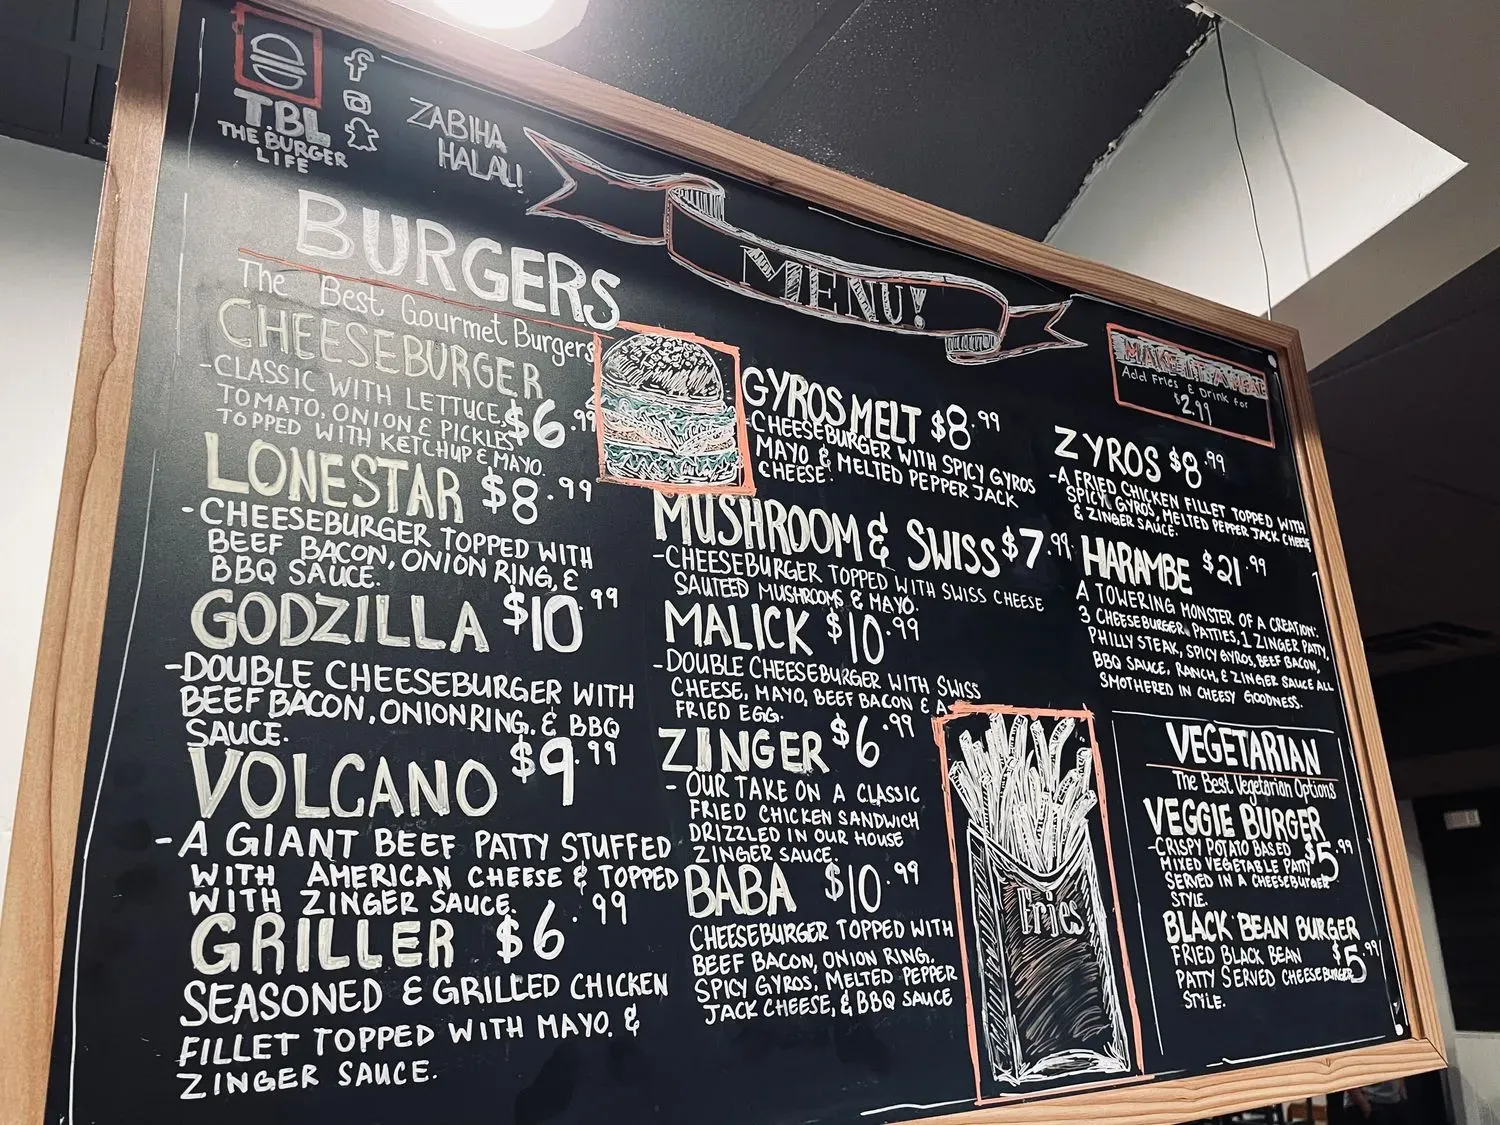 T.B.L
THE BURGER
LIFE
ZABIHA
HALAL!
MENU!
BURGERS
The Best Gourmet Burgers
CHEESEBURGER
-CLASSIC WITH LETTUCE, $6.99
TOMATO, ONION & PICKLES
TOPPED WITH KETCHUP & MAYO.
LONESTAR $8.99
-CHEESEBURGER TOPPED WITH
BEEF BACON, ONION RING, &
BBQ SAUCE.
GODZILLA $10.99
-DOUBLE CHEESEBURGER WITH
BEEF BACON, ONION RING, & BBQ
SAUCE.
VOLCANO $9.99
-A GIANT BEEF PATTY STUFFED
WITH AMERICAN CHEESE & TOPPED
WITH ZINGER SAUCE.
GRILLER $6.99
SEASONED & GRILLED CHICKEN
FILLET TOPPED WITH MAYO. &
ZINGER SAUCE.
GYROS MELT $8.99
-CHEESEBURGER WITH SPICY GYROS
MAYO & MELTED PEPPER JACK
CHEESE.
MUSHROOM & SWISS $7.99
-CHEESEBURGER TOPPED WITH SWISS CHEESE
SAUTEED MUSHROOMS & MAYO.
MALICK $10.99
-DOUBLE CHEESEBURGER WITH SWISS
CHEESE, MAYO, BEEF BACON & A
FRIED EGG.
ZINGER $6.99
- OUR TAKE ON A CLASSIC
FRIED CHICKEN SANDWICH
DRIZZLED IN OUR HOUSE
ZINGER SAUCE.
BABA $10.99
CHEESEBURGER TOPPED WITH
BEEF BACON, ONION RING.
SPICY GYROS, MELTED PEPPER
JACK CHEESE, & BBQ SAUCE
Fries
MAKE IT A MEAL
Add Fries & Drink for
$2.99
ZYROS $8.99
-A FRIED CHICKEN FILLET TOPPED WITH
SPICY GYROS, MELTED PEPPER JACK CHEESE
& ZINGER SAUCE.
HARAMBE $21.99
A TOWERING MONSTER OF A CREATION:
3 CHEESEBURGER PATTIES, 1 ZINGER PATTY,
PHILLY STEAK, SPICY GYROS, BEEF BACON,
BBQ SAUCE, RANCH, & ZINGER SAUCE ALL
SMOTHERED IN CHEESY GOODNESS.
VEGETARIAN
The Best Vegetarian Options
VEGGIE BURGER
-CRISPY POTATO BASED $5.99
MIXED VEGETABLE PATTY
SERVED IN A CHEESEBURGER
STYLE.
BLACK BEAN BURGER
FRIED BLACK BEAN $5.99
PATTY SERVED CHEESEBURGER
STYLE.